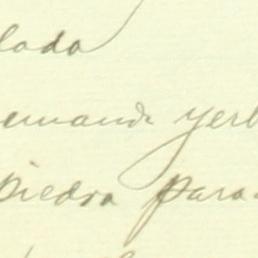 lada
emando yerb
piedra para